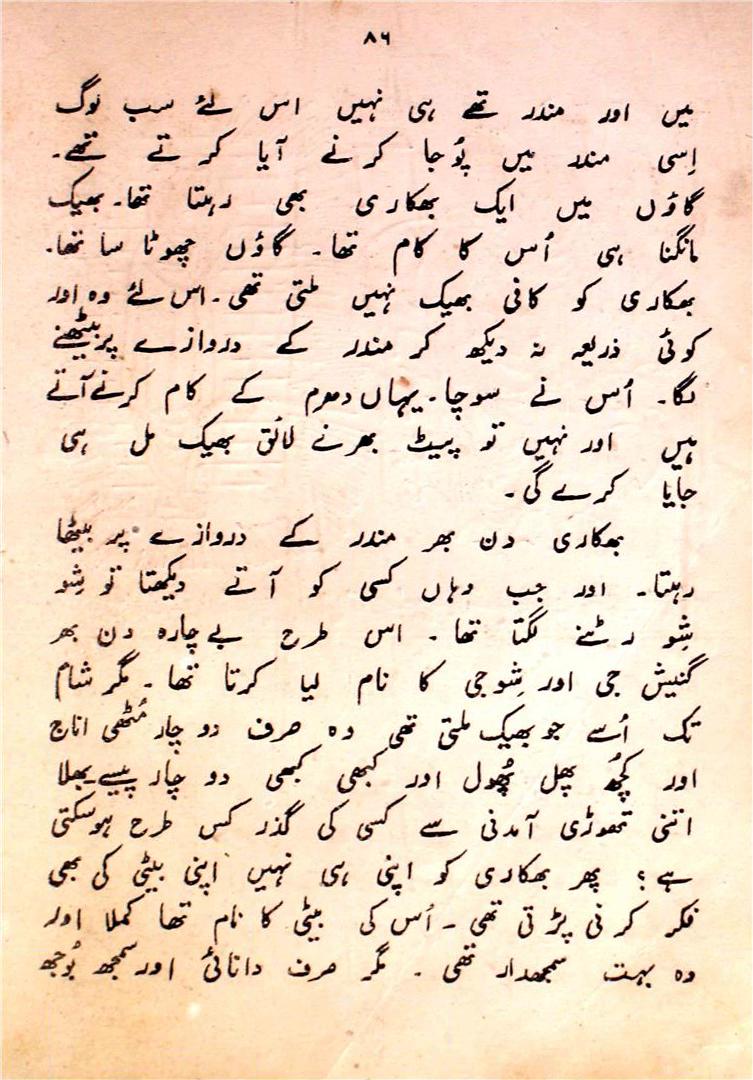 ۸۶
میں اور مندر تھے ہی نہیں اس لئے سب لوگ
اِسی مندر میں پُوجا کرنے آیا کرتے تھے۔
گاؤں میں ایک بھکاری بھی رہتا تھا۔ بھیک
مانگنا ہی اُس کا کام تھا۔ گاؤں چھوٹا سا تھا۔
بھکاری کو کافی بھیک نہیں ملتی تھی۔ اس لئے وہ اور
کوئی ذریعہ نہ دیکھ کر مندر کے دروازے پر بیٹھنے
لگا۔ اُس نے سوچا۔ یہاں دھرم کے کام کرنے آتے
ہیں اور نہیں تو پیٹ بھرنے لائق بھیک مل ہی
جایا کرے گی۔
بھکاری دن بھر مندر کے دروازے پر بیٹھا
رہتا۔ اور جب وہاں کسی کو آتے دیکھتا تو شِو
شِو رٹنے لگتا تھا۔ اس طرح بےچارہ دن بھر
گنیش جی اور شِوجی کا نام لیا کرتا تھا۔ مگر شام
تک اُسے جو بھیک ملتی تھی وہ صرف دو چار مُٹھی اناج
اور کچُھ پھل پُھول اور کبھی کبھی دو چار پیسے۔ بھلا
اتنی تھوڑی آمدنی سے کسی کی گذر کس طرح ہوسکتی
ہے؟ پھر بھکاری کو اپنی ہی نہیں اپنی بیٹی کی بھی
فکر کرنی پڑتی تھی۔ اُس کی بیٹی کا نام تھا کملا اور
وہ بہت سمجھدار تھی۔ مگر صرف دانائی اور سمجھ بُوجھ